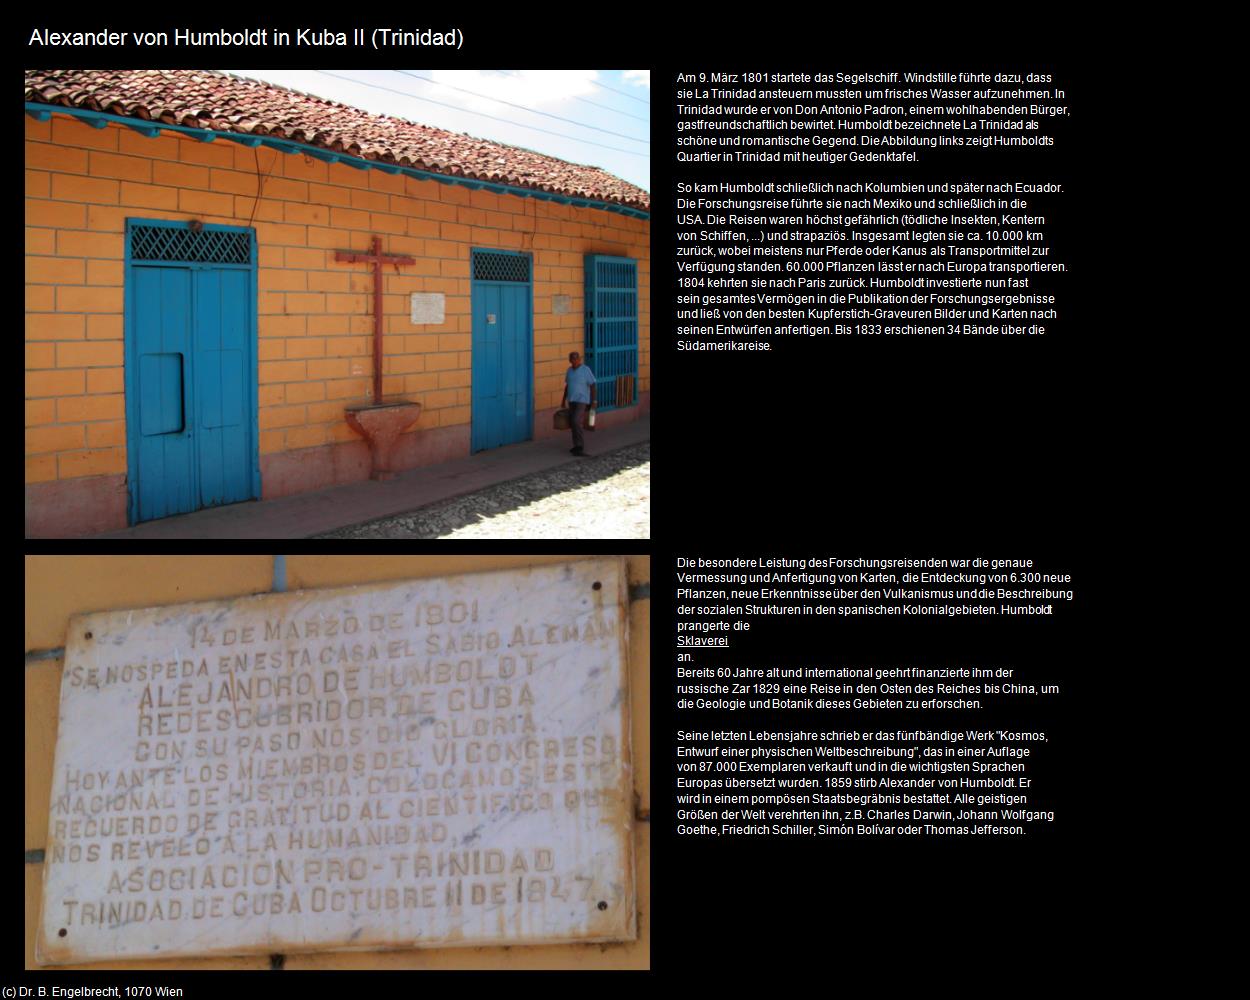 Alexander von Humboldt in Kuba II (Trinidad)
Am 9. März 1801 startete das Segelschiff. Windstille führte dazu, dass
sie La Trinidad ansteuern mussten um frisches Wasser aufzunehmen. In
Trinidad wurde er von Don Antonio Padron, einem wohlhabenden Bürger,
gastfreundschaftlich bewirtet. Humboldt bezeichnete La Trinidad als
schöne und romantische Gegend. Die Abbildung links zeigt Humboldts
Quartier in Trinidad mit heutiger Gedenktafel.
So kam Humboldt schließlich nach Kolumbien und später nach Ecuador.
Die Forschungsreise führte sie nach Mexiko und schließlich in die
USA. Die Reisen waren höchst gefährlich (tödliche Insekten, Kentern
von Schiffen, ...) und strapaziös. Insgesamt legten sie ca. 10.000 km
zurück, wobei meistens nur Pferde oder Kanus als Transportmittel zur
Verfügung standen. 60.000 Pflanzen lässt er nach Europa transportieren.
1804 kehrten sie nach Paris zurück. Humboldt investierte nun fast
sein gesamtes Vermögen in die Publikation der Forschungsergebnisse
und ließ von den besten Kupferstich-Graveuren Bilder und Karten nach
seinen Entwürfen anfertigen. Bis 1833 erschienen 34 Bände über die
Südamerikareise.
14 DE MARZO DE 1801
SE HOSPEDA EN ESTA CASA EL SABIO ALEMAN
ALEJANDRO DE HUMBOLDT
REDESCUBRIDOR DE CUBA
CON SU PASO NOS DIO GLORIA.
HOY ANTE LOS MIEMBROS DEL VI CONGRESO
NACIONAL DE HISTORIA. COLOCAMOS ESTE
RECUERDO DE GRATITUD AL CIENTIFICO QUE
NOS REVELO A LA HUMANIDAD
ASOCIACION PRO-TRINIDAD
TRINIDAD DE CUBA OCTUBRE 11 DE 1947
Die besondere Leistung des Forschungsreisenden war die genaue
Vermessung und Anfertigung von Karten, die Entdeckung von 6.300 neue
Pflanzen, neue Erkenntnisse über den Vulkanismus und die Beschreibung
der sozialen Strukturen in den spanischen Kolonialgebieten. Humboldt
prangerte die
Sklaverei
an.
Bereits 60 Jahre alt und international geehrt finanzierte ihm der
russische Zar 1829 eine Reise in den Osten des Reiches bis China, um
die Geologie und Botanik dieses Gebieten zu erforschen.
Seine letzten Lebensjahre schrieb er das fünfbändige Werk "Kosmos,
Entwurf einer physischen Weltbeschreibung", das in einer Auflage
von 87.000 Exemplaren verkauft und in die wichtigsten Sprachen
Europas übersetzt wurden. 1859 stirb Alexander von Humboldt. Er
wird in einem pompösen Staatsbegräbnis bestattet. Alle geistigen
Größen der Welt verehrten ihn, z.B. Charles Darwin, Johann Wolfgang
Goethe, Friedrich Schiller, Simón Bolívar oder Thomas Jefferson.
(c) Dr. B. Engelbrecht, 1070 Wien